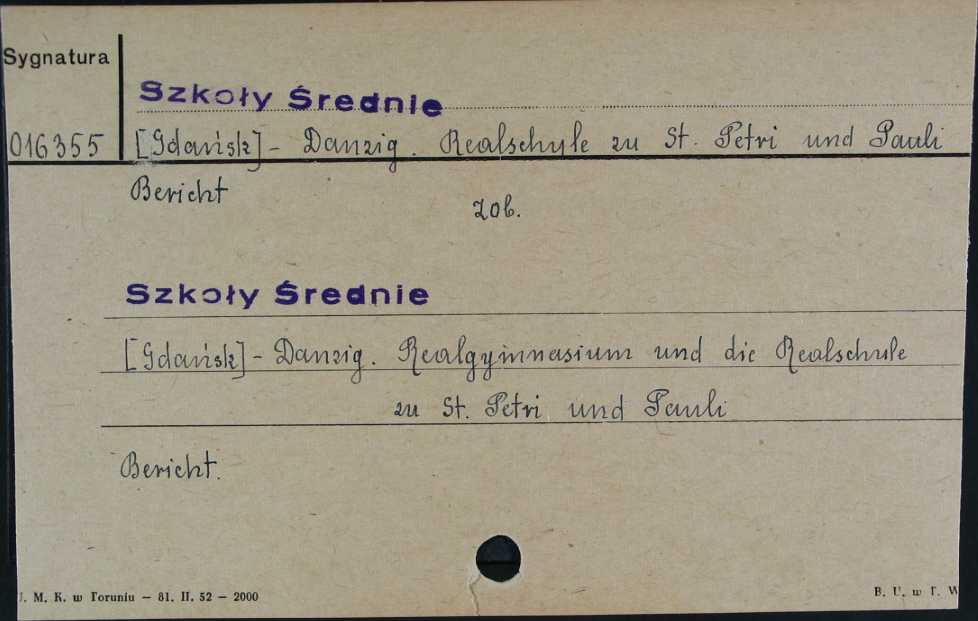 Sygnatura
Szkoły Średnie
016355 [Gdańsk] - Danzig. Realschule zu St. Petri und Pauli
Bericht
zob.
Szkoły Średnie
[Gdańsk] - Danzig. Realgymnasium und die Realschule
zu St. Petri und Pauli
Bericht.
J. M. K. w Toruniu — 81. II. 52 — 2000
B. U. w T. W